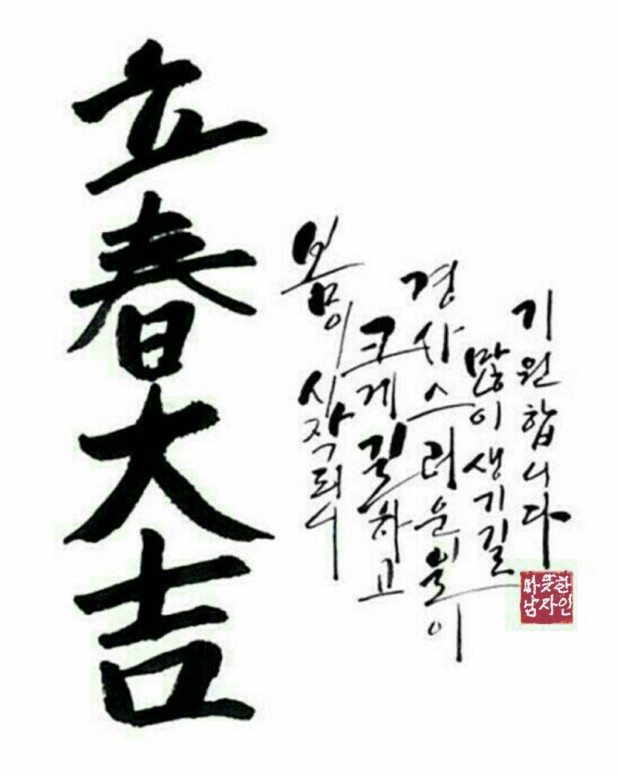 立春大吉
봄이 시작되니
크게 길하고
경사스러운 일이
많이 생기길
기원합니다
따뜻한
남자인